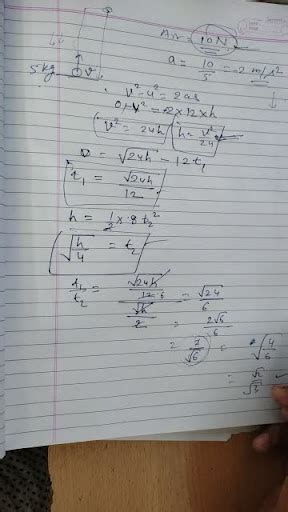 Air 10N
a = 10/5 = -2 m/s²
5kg v
v² - u² = 2as
0, v² = 2×12×h
v² = 24h h = v²/24
0 = √24h - 12t₁
t₁ = √24h/12
h = 1/2 × 8 t₂²
√h/4 = t₂
t₁/t₂ = √24h/12 / √h/2 = √24/6
= 2√6/6
= 2/√6 = √4/6
= √2/√3